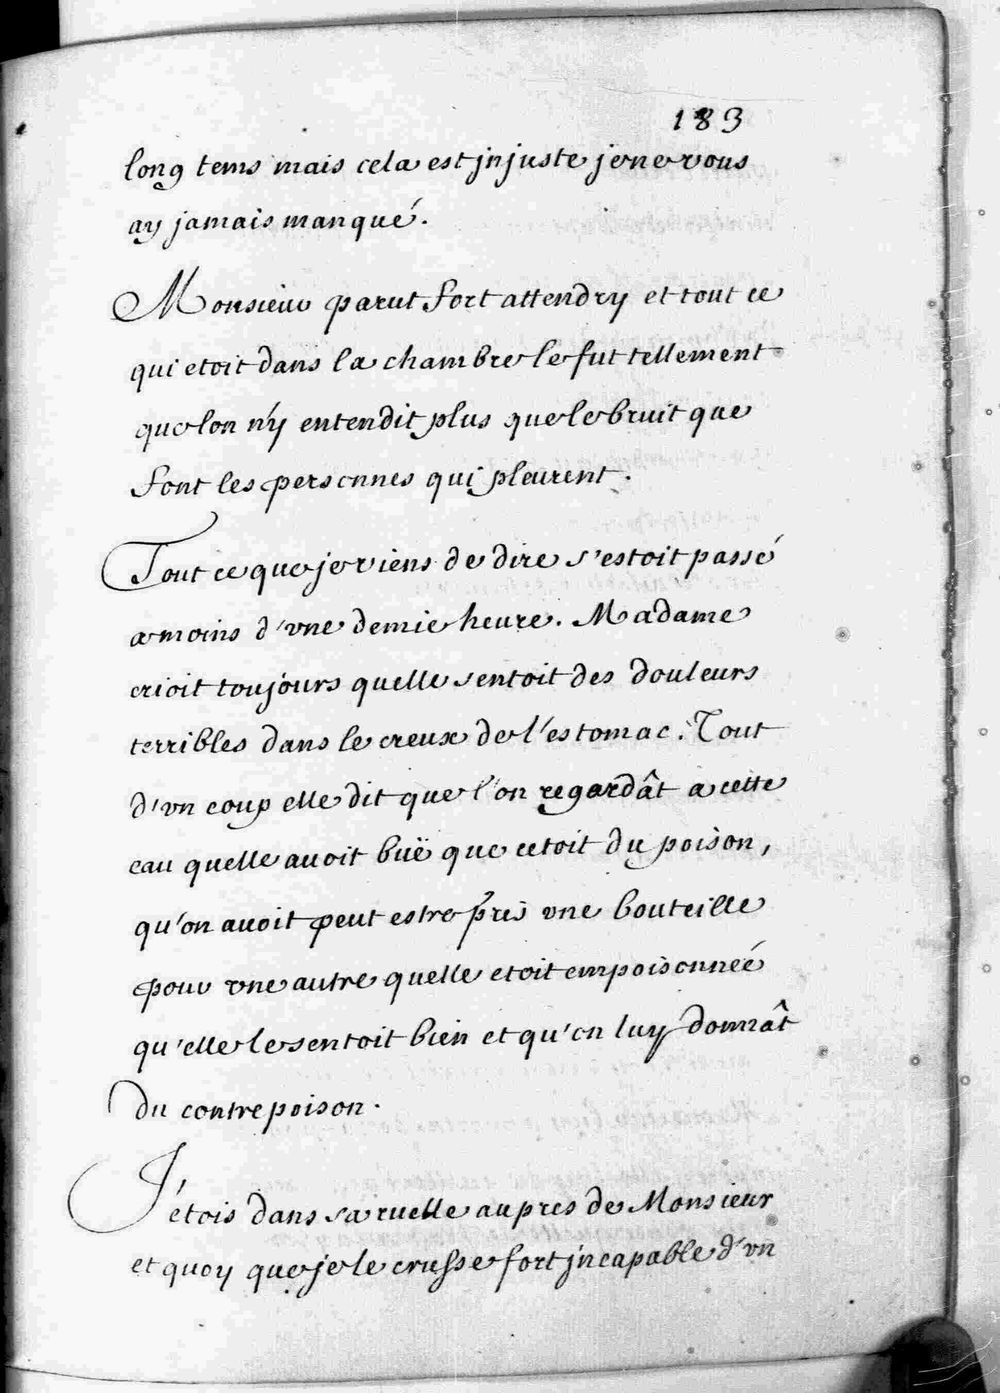 183
long tems mais cela est jnjuste je ne vous
ay jamais manqué.
Monsieur parut fort attendry et tout ce
qui etoit dans la chambre le fut tellement
que lon n'y entendit plus que le bruit que
font les personnes qui pleurent.
Tout ce que je viens de dire s'estoit passé
a moins d'vne demie heure. Madame
crioit toujours quelle sentoit des douleurs
terribles dans le creux de l'estomac. Tout
d'vn coup elle dit que l'on regardât a cette
eau quelle auoit buë que cetoit du poison,
qu'on auoit peut estre pris vne bouteille
pour vne autre quelle etoit empoisonneé
qu'elle le sentoit bien et qu'on luy donnât
du contrepoison.
J'étois dans sa ruelle aupres de Monsieur
et quoy que je le crusse fort jncapable d'vn